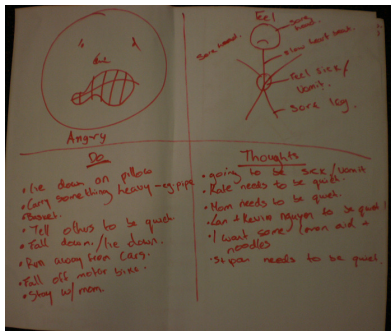 Angry
Feel
Sore head.
Sore hand.
slow heart beat.
Feel sick/
vomit.
Sore leg.
Do
• lie down on pillow
• Carry something heavy - eg. pipe
• Tell others to be quiet.
• Fall down. / lie down.
• Run away from cars.
• Fall off motor bike.
• Stay w/ mom.
Thoughts
• going to be sick/vomit
• Kale needs to be quiet.
• Mom needs to be quiet.
• Ian + Kevin nguyen to be quiet!
• I want some lemon aid +
noodles
• needs to be quiet.